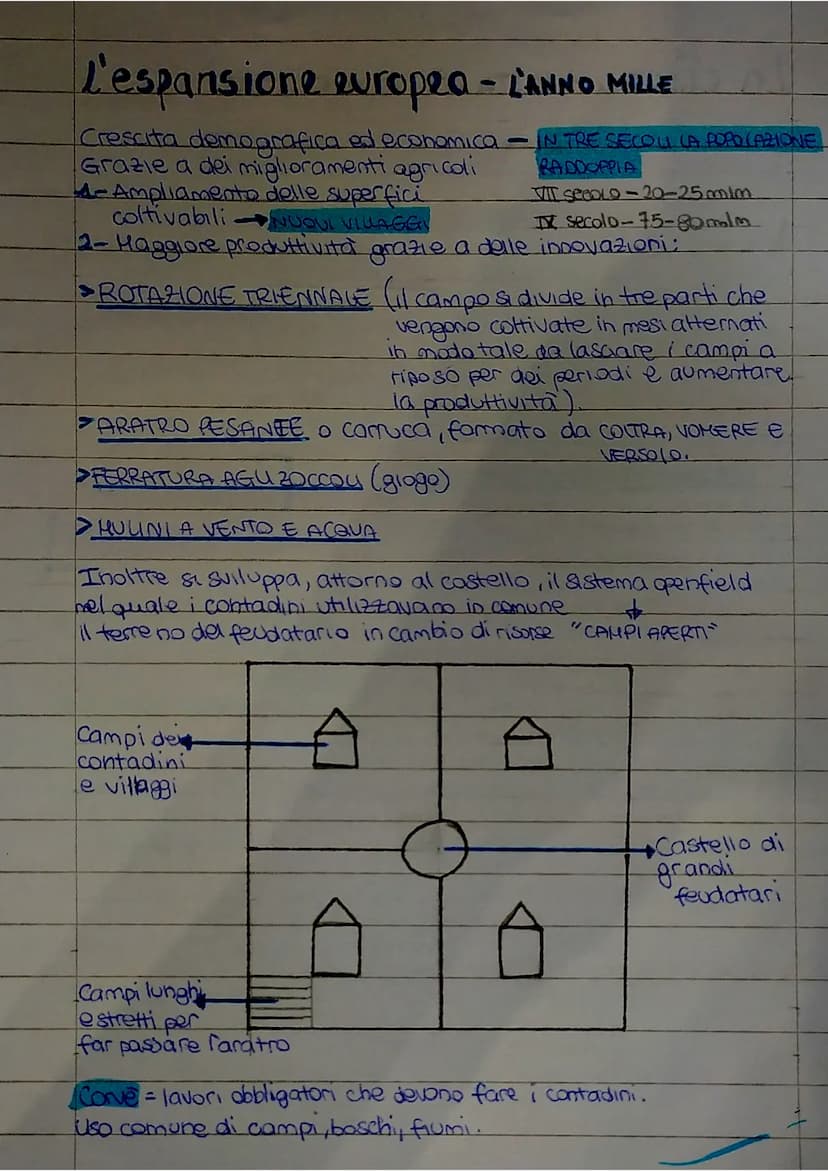 L'espansione europea - L'ANNO MILLE
Crescita demografica ed economica - IN TRE SECOLI LA POPOLAZIONE
Grazie a dei miglioramenti agricoli RADDOPPIA
1- Ampliamento delle superfici VII secolo - 20-25 mlm
coltivabili → NUOVI VILLAGGI IX secolo - 75-80 mlm
2- Maggiore produttività grazie a delle innovazioni:
>ROTAZIONE TRIENNALE (il campo si divide in tre parti che
vengono coltivate in mesi alternati
in modo tale da lasciare i campi a
riposo per dei periodi e aumentare
la produttività).
>ARATRO PESANTE o carruca, formato da COLTRA, VOMERE E
VERSOIO.
>FERRATURA AGLI ZOCCOLI (giogo)
>MULINI A VENTO E ACQUA
Inoltre si sviluppa, attorno al castello, il sistema openfield
nel quale i contadini utilizzavano in comune ↓
il terreno del feudatario in cambio di risorse "CAMPI APERTI"
Campi dei
contadini
e villaggi
Castello di
grandi
feudatari
Campi lunghi
e stretti per
far passare l'aratro
Corvè = lavori obbligatori che devono fare i contadini.
Uso comune di campi, boschi, fiumi.